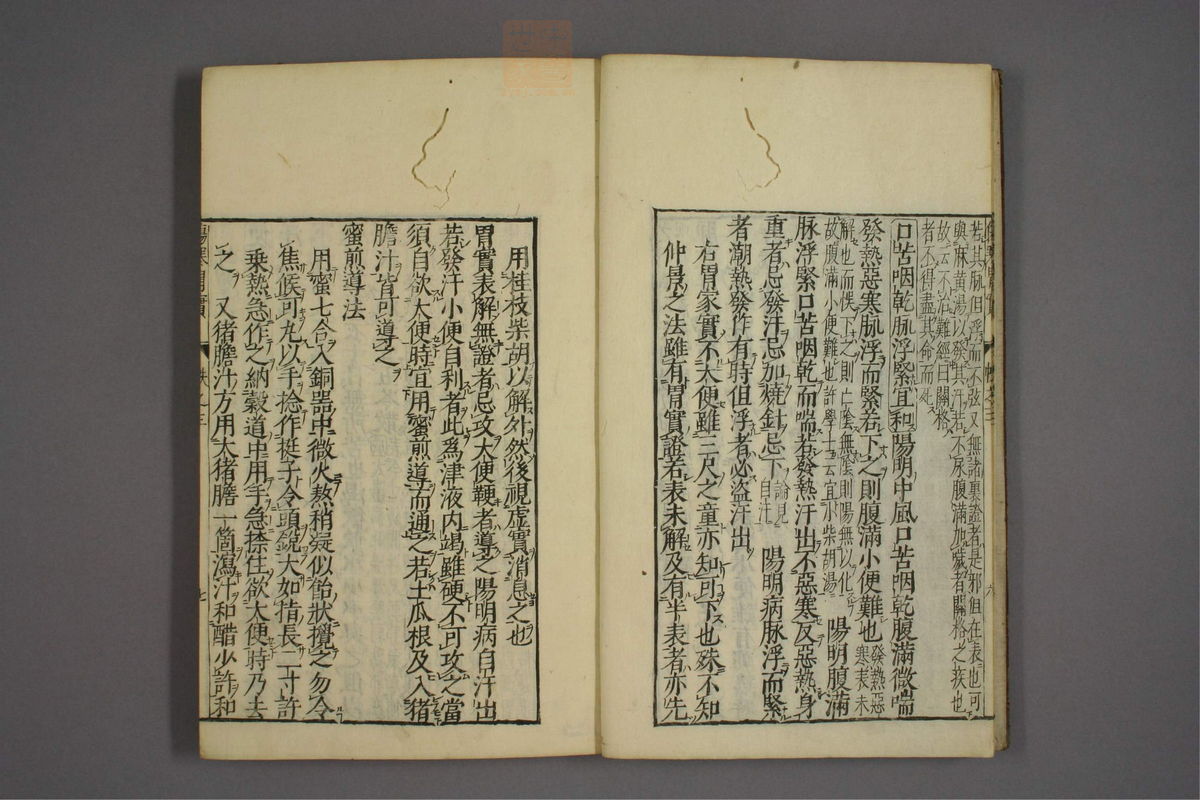 若其脉但浮而不弦又無諸裏證者是邪但在表也可
與麻黄湯以發其汗若不尿腹滿加噦者關格之疾也
故云不治難經曰關格
者不得盡其命而死
口苦咽乾脉浮緊宜和陽明中風口苦咽乾腹滿微喘
發熱惡寒脉浮而緊若下之則腹滿小便難也發熱惡
寒表未
解也而悞下之則亡陰無陰則陽無以化
故腹滿小便難也許學士云宜小柴胡湯
陽明腹滿
脉浮緊口苦咽乾而喘若發熱汗出不惡寒反惡熱身
重者忌發汗忌加燒針忌下論見
自汗
陽明病脉浮而緊
者潮熱發作有時但浮者必盜汗出
右胃家實不大便雖三尺之童亦知可下也殊不知
仲景之法雖有胃實證若表未解及有半表者亦先
用桂枝柴胡以解外然後視虛實消息之也
胃實表解無證者忌攻大便鞕者導之陽明病自汗出
若發汗小便自利者此爲津液内竭雖硬不可攻之當
須自欲大便時宜用蜜煎導而通之若土瓜根及入猪
膽汁皆可導之
蜜煎導法
用蜜七合入銅器中微火熬稍凝似飴狀攪之勿令
焦候可丸以手捻作挺子令頭銳大如指長二寸許
乗熱急作之納穀道中用手急捺住欲大便時乃去
之 又猪膽汁方用大猪膽一箇瀉汁和醋少許和
七
六